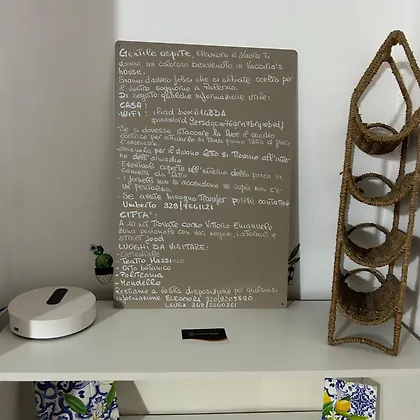 Gentile ospite, Eleonora e Laura Ti
danno un caloroso benvenuto in
house.
Siamo davvero felici che ci abbiate scelto per
il vostro soggiorno a Palermo.
Di seguito qualche informazione utile:
CASA:
WIFI: iliad box
password
-Se si dovesse staccare la luce il quadro
elettrico per attivarlo si trova piano terra di fianco
l'ascensore.
-Lenzuola per il divano letto si trovano all'inter
no dell'armadio
-Eventuali coperte all'interno della panca in
camera da letto
-I fornelli non si accendono se sopra non c'è
un pentolino.
-Se avete bisogno Transfer potete contattare
Umberto
CITTÀ:
A 10 mt trovate corso Vittorio Emanuele
zona pedonale con vari negozi, ristoranti e
street food
LUOGHI DA VISITARE:
-Cattedrale
-Teatro Massimo
-Orto botanico
-Politeama
-Mondello
Restiamo a Vostra disposizione per qualsiasi
informazione ELEONORA
LAURA